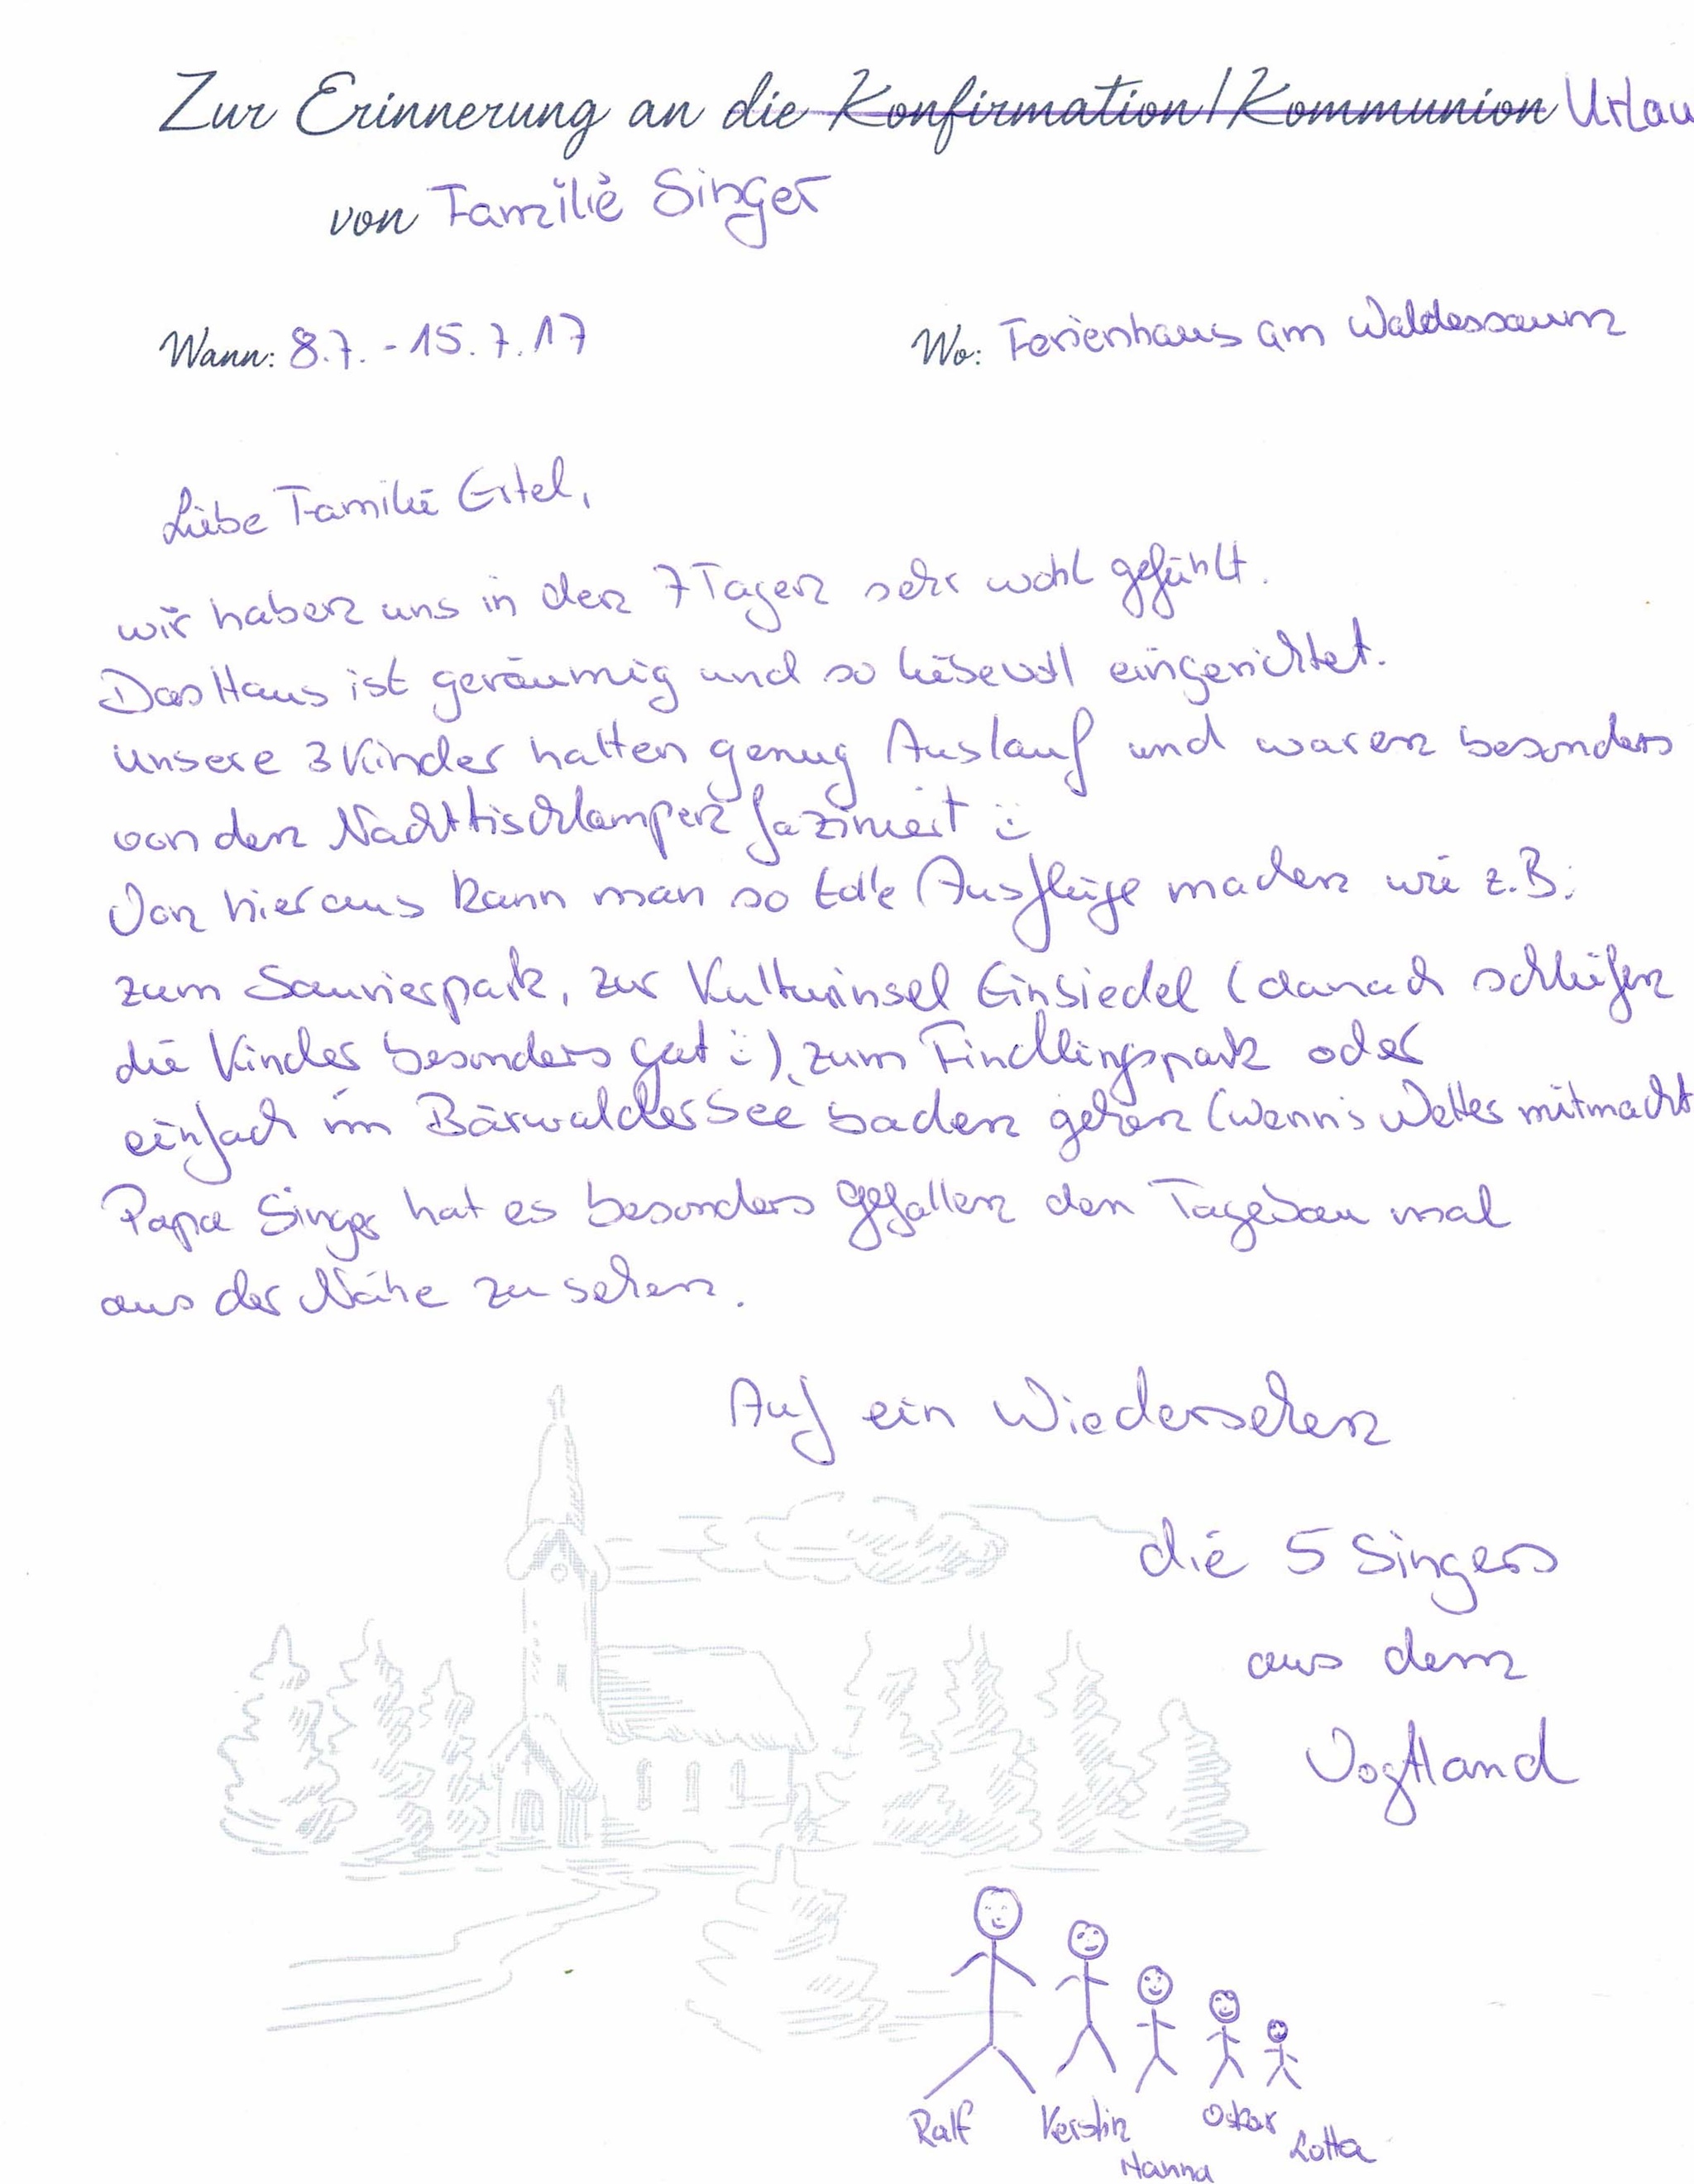 Zur Erinnerung an die Konfirmation/Kommunion Urlau
von Familie Singer
Wann: 8.7. - 15.7.17 Wo: Ferienhaus am Waldessaum
Liebe Familie Ertel,
wir haben uns in den 7 Tagen sehr wohl gefühlt.
Das Haus ist geräumig und so liebevoll eingerichtet.
Unsere 3 Kinder hatten genug Auslauf und waren besonders
von den Nachttischlampen faziniert :)
Von hier aus kann man so tolle Ausflüge machen wie z.B.:
zum Saurierpark, zur Kulturinsel Einsiedel (danach schliefen
die Kinder besonders gut :)), zum Findlingspark oder
einfach im Bärwalder See baden gehen (wenn's Wetter mitmacht
Papa Singer hat es besonders gefallen den Tagebau mal
aus der Nähe zu sehen.
Auf ein Wiedersehen
die 5 Singers
aus dem
Vogtland
Ralf Kerstin Hanna Oskar Lotta